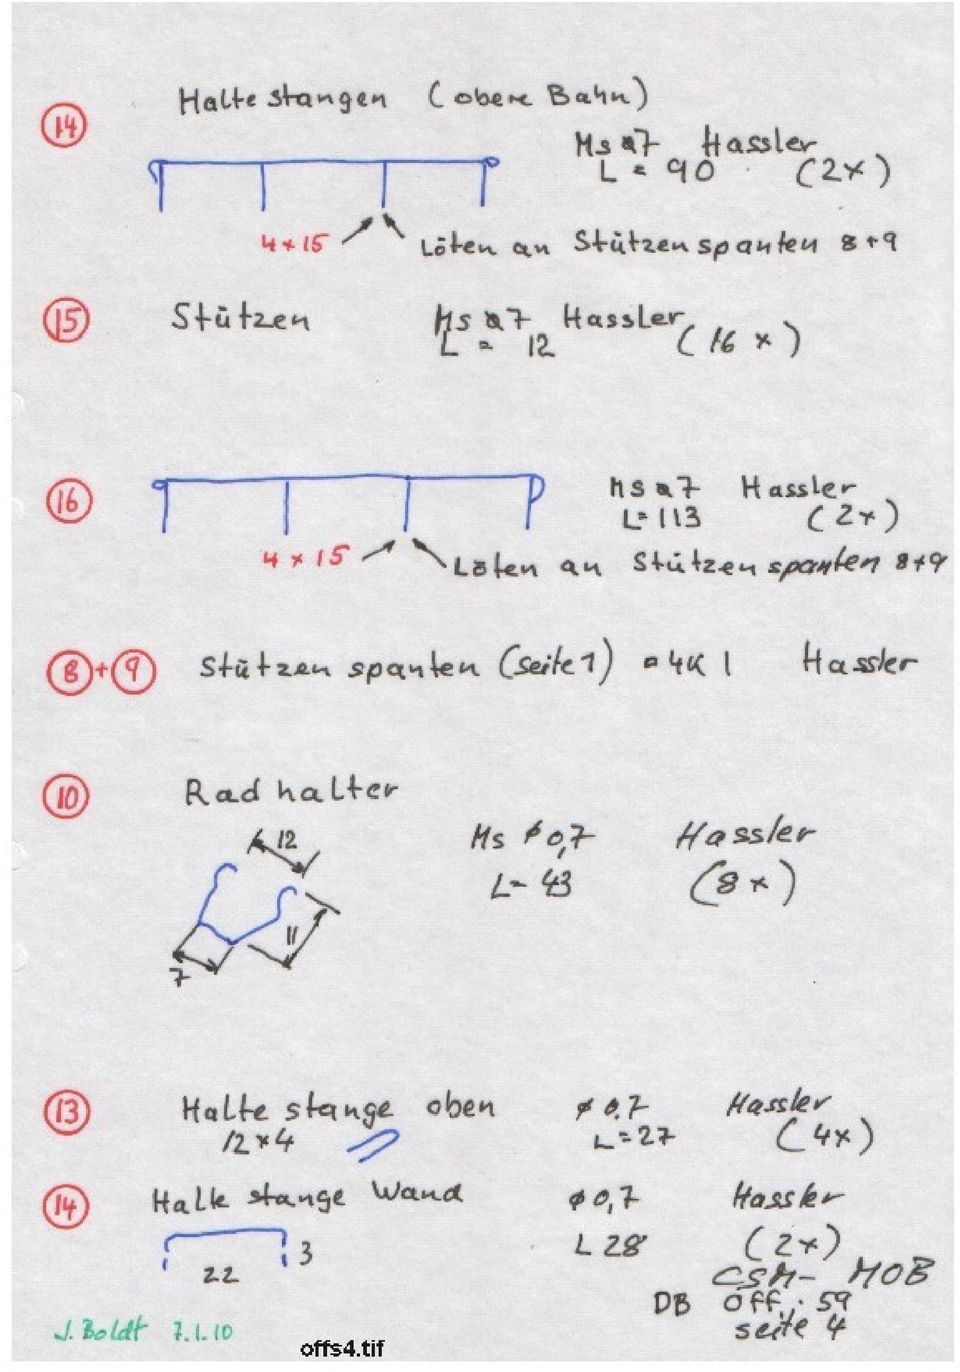 14 Haltestangen (obere Bahn)
Ms 0,7 Hassler
L = 90 (2x)
4 x 15 Löten an Stützenspanten 8+9
15 Stützen Ms 0,7 Hassler
L = 12 (16 x)
16 Ms 0,7 Hassler
L = 113 (2x)
4 x 15 Löten an Stützenspanten 8+9
8 + 9 Stützenspanten (Seite 1) Hassler
10 Radhalter
12
Ms ø 0,7 Hassler
L = 43 (8x)
11
7
13 Haltestange oben ø 0.7 Hassler
12 x 4 L = 27 (4x)
14 Haltestange Wand ø 0,7 Hassler
3 L 28 (2x)
22
CSM - MOB
DB Öff. 59
Seite 4
J. Boldt 7.1.10
offs4.tif